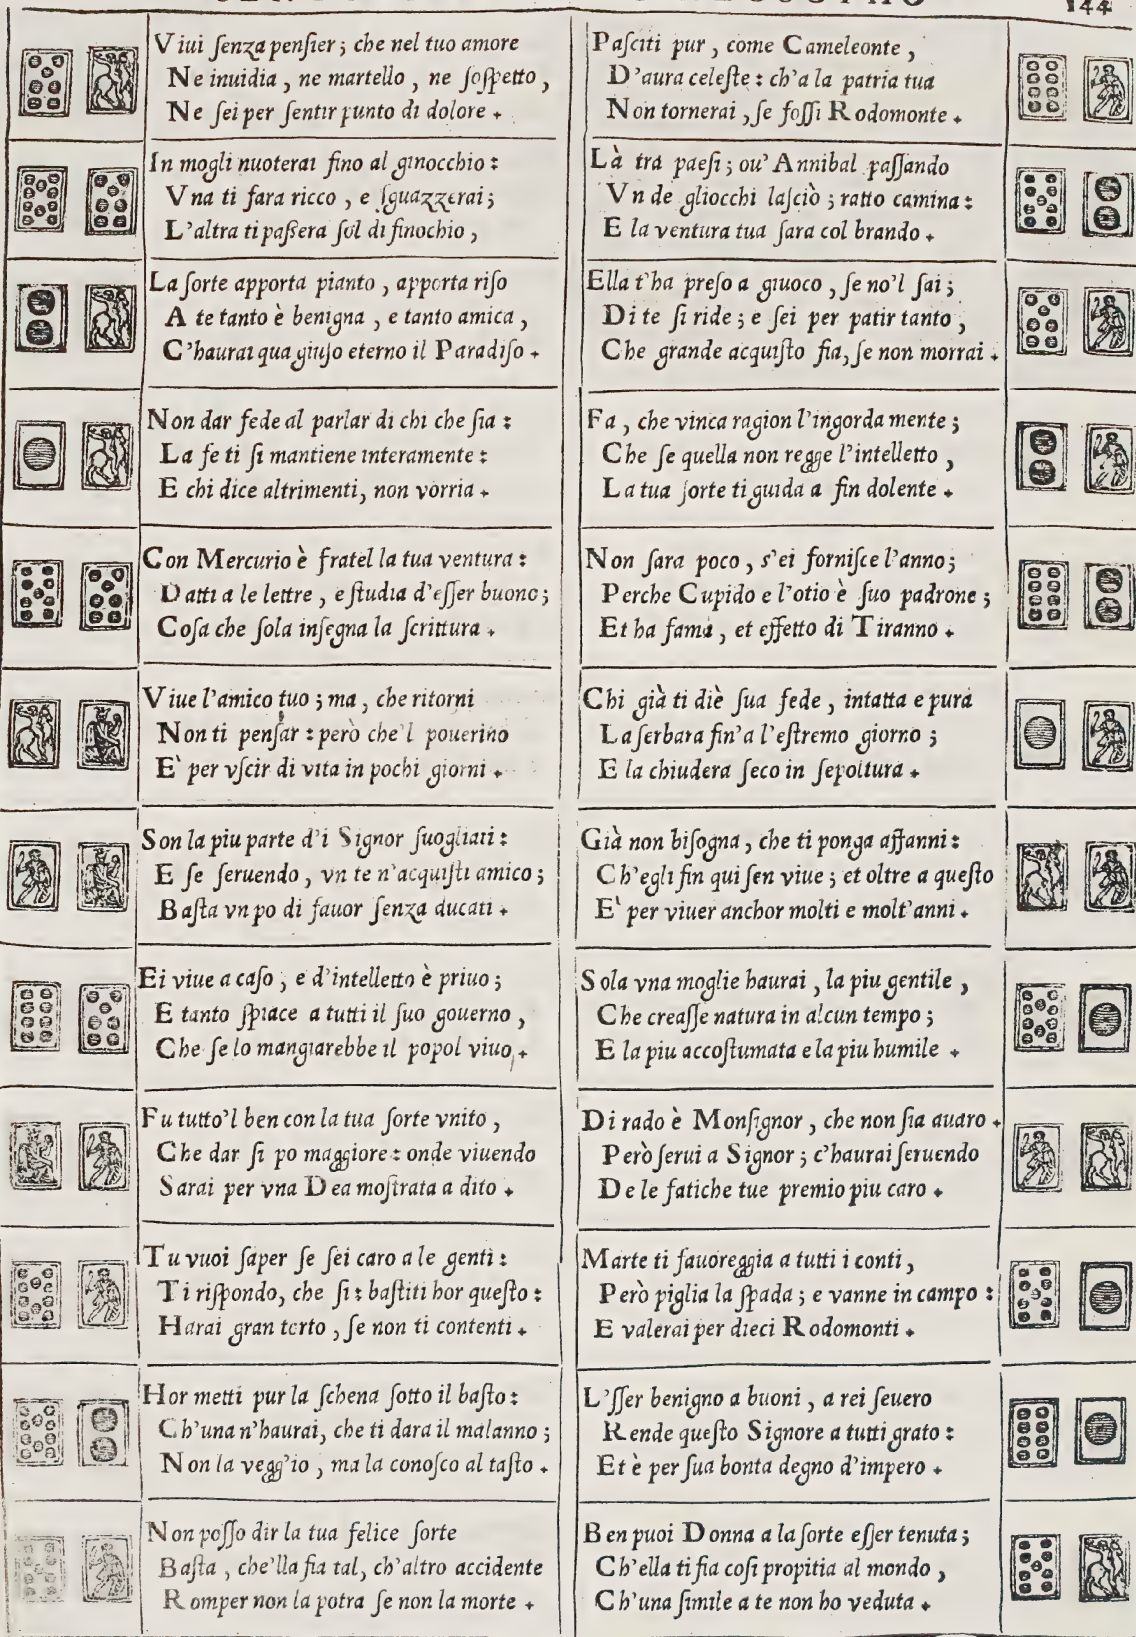 144
Viui ſenza penſier; che nel tuo amore
Ne inuidia, ne martello, ne ſoſpetto,
Ne ſei per ſentir punto di dolore.
In mogli nuoterai fino al ginocchio:
Vna ti fara ricco, e ſguazzerai;
L'altra ti paſſera ſol di finochio,
La ſorte apporta pianto, apporta riſo
A te tanto è benigna, e tanto amica,
C'haurai qua giuſo eterno il Paradiſo.
Non dar fede al parlar di chi che ſia:
La fe ti ſi mantiene interamente:
E chi dice altrimenti, non vorria.
Con Mercurio è fratel la tua ventura:
Datti a le lettre, e ſtudia d'eſſer buono;
Coſa che ſola inſegna la ſcrittura.
Viue l'amico tuo; ma, che ritorni
Non ti penſar: però che'l pouerino
E' per vſcir di vita in pochi giorni.
Son la piu parte d'i Signor ſuogliati:
E ſe ſeruendo, vn te n'acquiſti amico;
Baſta vn po di fauor ſenza ducati.
Ei viue a caſo, e d'intelletto è priuo;
E tanto ſpiace a tutti il ſuo gouerno,
Che ſe lo mangiarebbe il popol viuo.
Fu tutto'l ben con la tua ſorte vnito,
Che dar ſi po maggiore: onde viuendo
Sarai per vna Dea moſtrata a dito.
Tu vuoi ſaper ſe ſei caro a le genti:
Ti riſpondo, che ſi: baſtiti hor queſto:
Harai gran torto, ſe non ti contenti.
Hor metti pur la ſchena ſotto il baſto:
Ch'una n'haurai, che ti dara il malanno;
Non la vegg'io, ma la conoſco al taſto.
Non poſſo dir la tua felice ſorte
Baſta, che'lla ſia tal, ch'altro accidente
Romper non la potra ſe non la morte.
Paſciti pur, come Cameleonte,
D'aura celeſte: ch'a la patria tua
Non tornerai, ſe foſſi Rodomonte.
Là tra paeſi; ou'Annibal paſſando
Vn de gliocchi laſciò; ratto camina:
E la ventura tua ſara col brando.
Ella t'ha preſo a giuoco, ſe no'l ſai;
Di te ſi ride; e ſei per patir tanto,
Che grande acquiſto fia, ſe non morrai.
Fa, che vinca ragion l'ingorda mente;
Che ſe quella non regge l'intelletto,
La tua ſorte ti guida a fin dolente.
Non ſara poco, s'ei forniſce l'anno;
Perche Cupido e l'otio è ſuo padrone;
Et ha fama, et effetto di Tiranno.
Chi già ti diè ſua fede, intatta e pura
La ſerbara fin'a l'eſtremo giorno;
E la chiudera ſeco in ſepoltura.
Già non biſogna, che ti ponga affanni:
Ch'egli fin qui ſen viue; et oltre a queſto
E' per viuer anchor molti e molt'anni.
Sola vna moglie haurai, la piu gentile,
Che creaſſe natura in alcun tempo;
E la piu accoſtumata e la piu humile.
Di rado è Monſignor, che non ſia auaro.
Però ſerui a Signor; c'haurai ſeruendo
De le fatiche tue premio piu caro.
Marte ti fauoreggia a tutti i conti,
Però piglia la ſpada; e vanne in campo:
E valerai per dieci Rodomonti.
L'ſſer benigno a buoni, a rei ſeuero
Rende queſto Signore a tutti grato:
Et è per ſua bonta degno d'impero.
Ben puoi Donna a la ſorte eſſer tenuta;
Ch'ella ti ſia coſi propitia al mondo,
Ch'una ſimile a te non ho veduta.